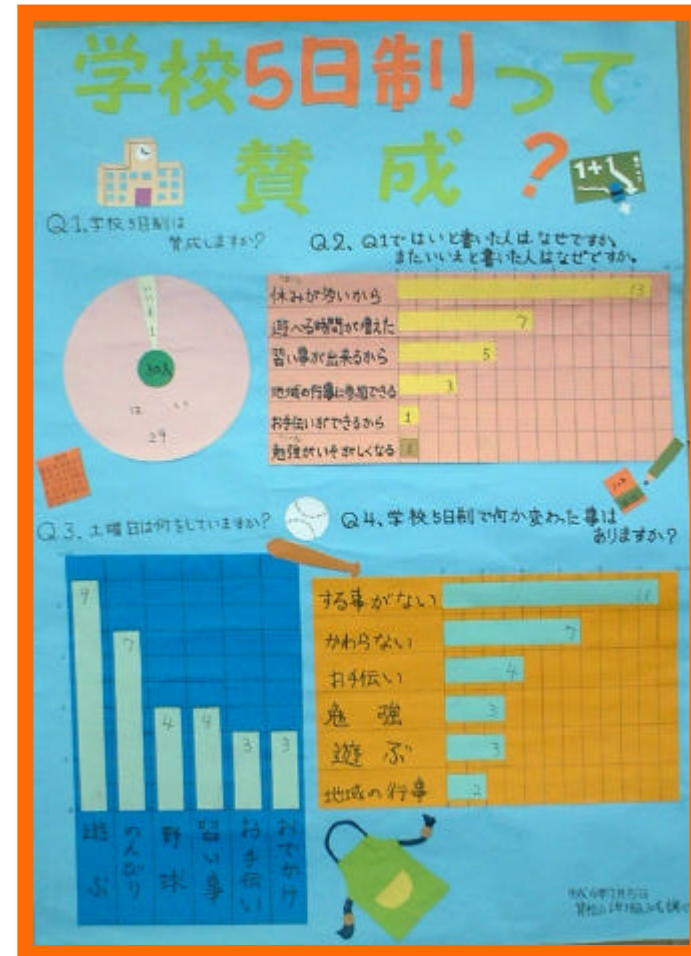 学校5日制って
賛成?
1+1
Q1.学校5日制は
賛成しますか?
いいえ
1
30人
はい
29
Q2、Q1ではいと書いた人はなぜですか。
また、いいえと書いた人はなぜですか。
休みが多いから 13
遊べる時間が増えた 7
習い事が出来るから 5
地域の行事に参加できる 3
お手伝いができるから 1
勉強がいそがしくなる 1
Q3、土曜日は何をしていますか?
9 7 4 4 3 3
遊ぶ
のんびり
野球
習い事
お手伝い
おでかけ
Q4、学校5日制で何か変わった事は
ありますか?
する事がない 11
かわらない 7
お手伝い 4
勉強 3
遊ぶ 3
地域の行事 2